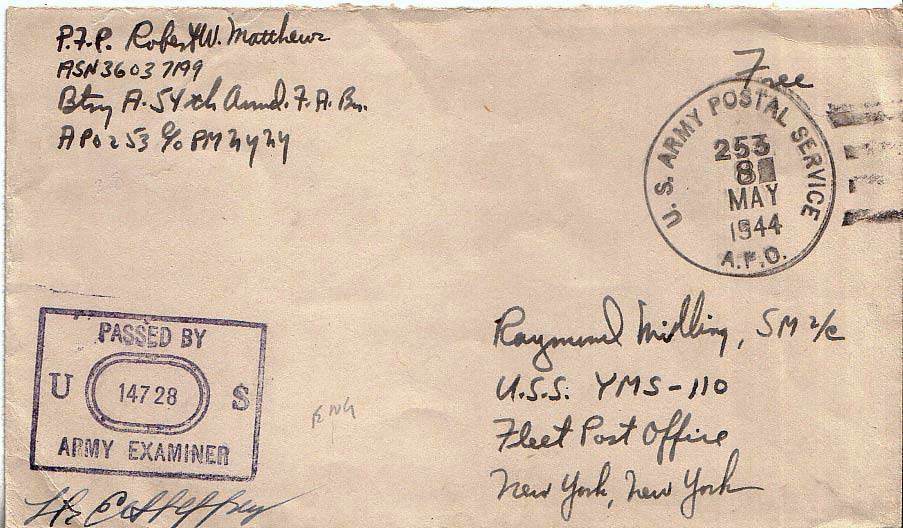 P.F.C. Robert W. Matthews
ASN 36037199
Btry A. 54th Armd. F.A. Bn.
APO 253 c/o PM NY NY
Free
U.S. ARMY POSTAL SERVICE
253
8
MAY
1944
A.P.O.
Raymund Milling, SM 2/c
U.S.S. YMS-110
Fleet Post Office
New York, New York
PASSED BY
U 14728 S
ARMY EXAMINER
ENG